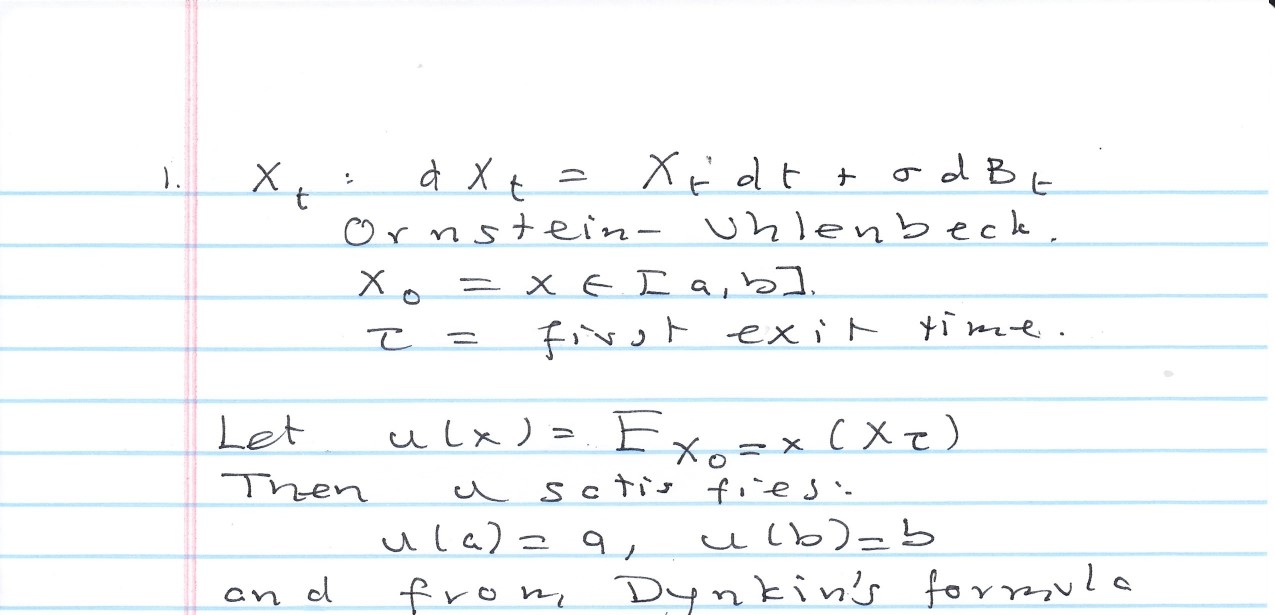 1. X_t : dX_t = X_t dt + σ dB_t
Ornstein-Uhlenbeck.
X_0 = x ∈ [a,b].
τ = first exit time.
Let u(x) = E_{X_0=x}(X_τ)
Then u satisfies:
u(a) = a, u(b) = b
and from Dynkin's formula